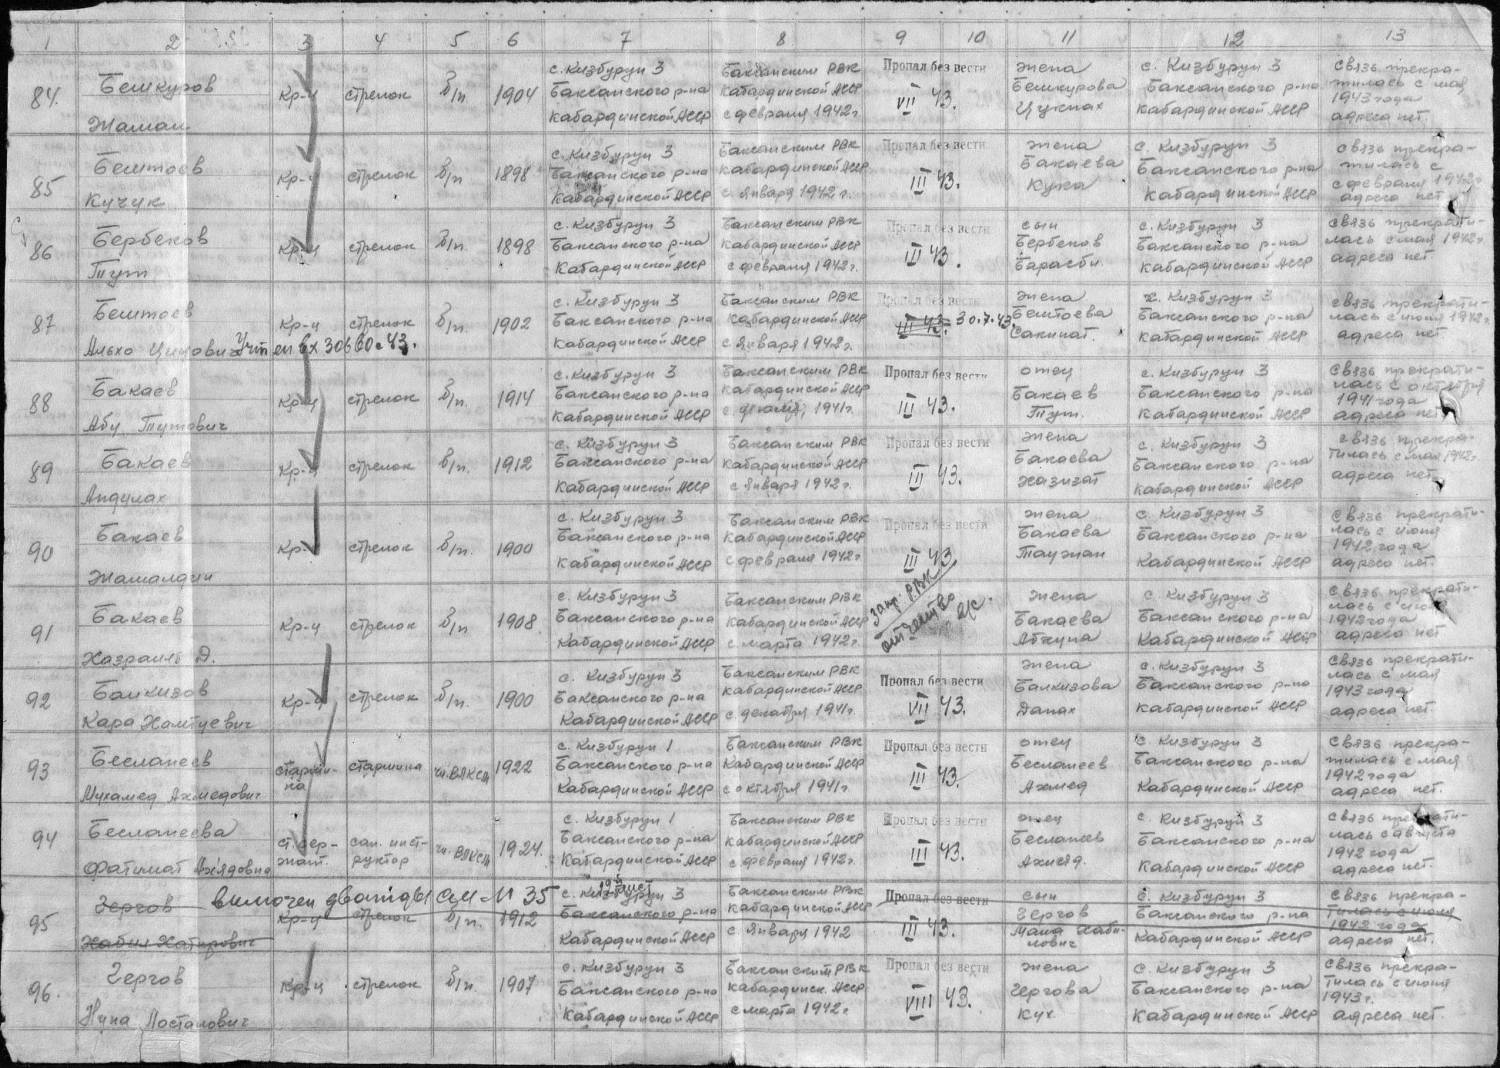 1 2 3 4 5 6 7 8 9 10 11 12 13
84. Бешкуров Жамал Кр-ц стрелок б/п 1904 с. Кизбурун 3 Баксанского р-на Кабардинской АССР Баксанским РВК Кабардинской АССР с февраля 1942 г. Пропал без вести VII 43. жена Бешкурова Цукпах с. Кизбурун 3 Баксанского р-на Кабардинской АССР связь прекратилась с мая 1943 года адреса нет.
85 Бештоев Кучук Кр-ц стрелок б/п 1898 с. Кизбурун 3 Баксанского р-на Кабардинской АССР Баксанским РВК Кабардинской АССР с января 1942 г. Пропал без вести III 43. жена Бакаева Кужа с. Кизбурун 3 Баксанского р-на Кабардинской АССР связь прекратилась с февраля 1942 г. адреса нет
86 Бербеков Тут Кр-ц стрелок б/п 1898 с. Кизбурун 3 Баксанского р-на Кабардинской АССР Баксанским РВК Кабардинской АССР с февраля 1942 г. Пропал без вести III 43. сын Бербеков Барасби. с. Кизбурун 3 Баксанского р-на Кабардинской АССР связь прекратилась с мая 1942 г. адреса нет
87 Бештоев Кр-ц стрелок б/п. 1902 с. Кизбурун 3 Баксанского р-на Кабардинской АССР Баксанским РВК Кабардинской АССР с января 1942 г. Пропал без вести III 43. 30.7.43 жена Бештоева Сакинат. с. Кизбурун 3 Баксанского р-на Кабардинской АССР связь прекратилась с июня 1942 г. адреса нет
88 Бакаев Абу Тутович Кр-ц стрелок б/п. 1914 с. Кизбурун 3 Баксанского р-на Кабардинской АССР Баксанским РВК Кабардинской АССР 1941 г. Пропал без вести III 43. отец Бакаев Тут. с. Кизбурун 3 Баксанского р-на Кабардинской АССР связь прекратилась с октября 1941 года адреса нет
89 Бакаев Андулах Кр-ц стрелок б/п. 1912 с. Кизбурун 3 Баксанского р-на Кабардинской АССР Баксанским РВК Кабардинской АССР с января 1942 г. Пропал без вести III 43. жена Бакаева Хазизат с. Кизбурун 3 Баксанского р-на Кабардинской АССР связь прекратилась с мая 1942 г. адреса нет
90 Бакаев Жамалдин Кр-ц стрелок б/п. 1900 с. Кизбурун 3 Баксанского р-на Кабардинской АССР Баксанским РВК Кабардинской АССР с февраля 1942 г. Пропал без вести III 43 жена Бакаева Таужан с. Кизбурун 3 Баксанского р-на Кабардинской АССР связь прекратилась с июня 1942 года адреса нет.
91 Бакаев Хазраиль Д. Кр-ц стрелок б/п 1908 с. Кизбурун 3 Баксанского р-на Кабардинской АССР Баксанским РВК Кабардинской АССР с марта 1942 г. РВК жена Бакаева с. Кизбурун 3 Баксанского р-на Кабардинской АССР связь прекратилась с июня 1942 года адреса нет
92 Балкизов Кара Хамтуевич Кр-ц стрелок б/п 1900 с. Кизбурун 3 Баксанского р-на Кабардинской АССР Баксанским РВК Кабардинской АССР с декабря 1941 г. Пропал без вести VII 43. жена Балкизова Данах с. Кизбурун 3 Баксанского р-на Кабардинской АССР связь прекратилась с мая 1943 года адреса нет.
93 Бесланеев Мухамед Ахмедович старшина старшина чл. ВЛКСМ 1922 с. Кизбурун 1 Баксанского р-на Кабардинской АССР Баксанским РВК Кабардинской АССР с октября 1941 г. Пропал без вести III 43. отец Бесланеев Ахмед с. Кизбурун 3 Баксанского р-на Кабардинской АССР связь прекратилась с мая 1942 года адреса нет.
94 Бесланеева Фатимат ст. сержант. сан. инструктор чл. ВЛКСМ 1924. с. Кизбурун 1 Баксанского р-на Кабардинской АССР Баксанским РВК Кабардинской АССР с февраля 1942 г. Пропал без вести III 43. отец Бесланеев с. Кизбурун 3 Баксанского р-на Кабардинской АССР связь прекратилась с августа 1942 года адреса нет.
95 Гергов Хабил Хатирович включен дважды см. N 35 Кр-ц стрелок б/п. 1912 с. Кизбурун 3 Баксанского р-на Кабардинской АССР Баксанским РВК Кабардинской АССР с января 1942 Пропал без вести III 43. сын Гергов с. Кизбурун 3 Баксанского р-на Кабардинской АССР связь прекратилась с июня 1942 года адреса нет.
96. Гергов Нуна Постанович Кр-ц стрелок б/п. 1907 с. Кизбурун 3 Баксанского р-на Кабардинской АССР Баксанским РВК Кабардинск. АССР с марта 1942 г. Пропал без вести VIII 43. жена Гергова Кух. с. Кизбурун 3 Баксанского р-на Кабардинской АССР связь прекратилась с июня 1943 г. адреса нет.